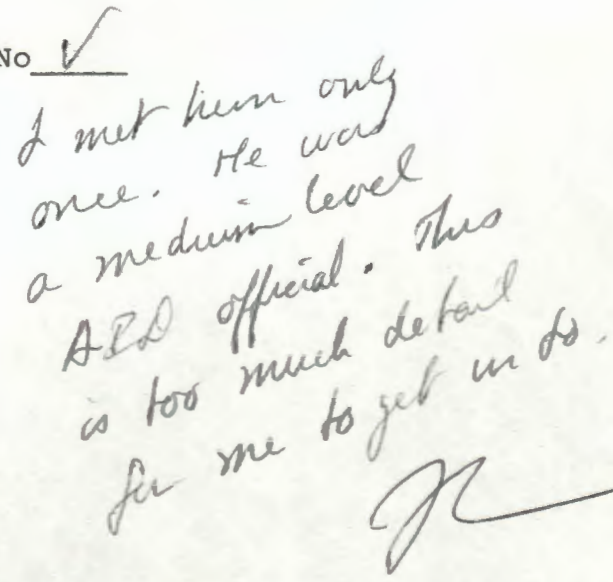 No ✓
I met him only
once. He was
a medium level
official. This
is too much detail
for me to get in to.